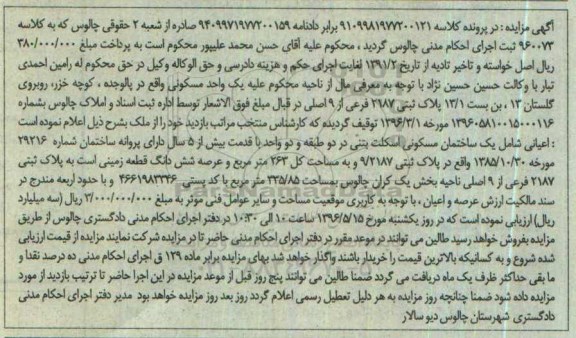 آگهی مزایده : در پرونده کلاسه ۹۱۰۹۹۸۱۹۷۷۲۰۰۱۲۱ برابر دادنامه ۹۴۰۹۹۷۱۹۷۷۲۰۰۱۵۹ صادره از شعبه ۲ حقوقی چالوس که به کلاسه
۹۶۰۰۷۳ ثبت اجرای احکام مدنی چالوس گردید ، محکوم علیه آقای حسن محمد علیپور محکوم است به پرداخت مبلغ ۳۸۰/۰۰۰/۰۰۰
ریال اصل خواسته و تاخیر تادیه از تاریخ ۱۳۹۱/۲ لغایت اجرای حکم و هزینه دادرسی و حق الوکاله وکیل در حق محکوم له رامین احمدی
تبار با وکالت حسین حسین نژاد با توجه به معرفی مال از ناحیه محکوم علیه یک واحد مسکونی واقع در پالوجده ، کوچه خزر، روبروی
گلستان ۱۳ ، بن بست ۱۳/۱ پلاک ثبتی ۲۱۸۷ فرعی از ۹ اصلی در قبال مبلغ فوق الاشعار توسط اداره ثبت اسناد و املاک چالوس بشماره
۱۳۹۶۰۵۸۱۰۰۱۵۰۰۰۱۱۶ مورخه ۱۳۹۶/۳/۱ توقیف گردیده که کارشناس منتخب مراتب بازدید خود را از ملک بشرح ذیل اعلام نموده است
: اعیانی شامل یک ساختمان مسکونی اسکلت بتنی در دو طبقه و دو واحد با قدمت بیش از ۵ سال دارای پروانه ساختمان شماره ۲۹۲۱۶
مورخه ۱۳۸۵/۱۰/۳۰ واقع در پلاک ثبتی ۹/۲۱۸۷ و به مساحت کل ۲۶۳ متر مربع و عرصه شش دانگ قطعه زمینی است به پلاک ثبتی
۲۱۸۷ فرعی از ۹ اصلی ناحیه بخش یک کران چالوس بمساحت ۳۳۵/۸۵ متر مربع با کد پستی ۴۶۶۱۹۸۳۳۴۶ و با حدود اربعه مندرج در
سند مالکیت ارزش عرصه و اعیان ، با توجه به کاربری موقعیت مساحت و سایر عوامل فنی موثر به مبلغ ۳/۰۰۰/۰۰۰/۰۰۰ ریال (سه میلیارد
ریال) ارزیابی نموده است که در روز یکشنبه مورخ ۱۳۹۶/۵/۱۵ ساعت ۱۰ الی ۱۰:۳۰ در دفتر اجرای احکام مدنی دادگستری چالوس از طریق
مزایده بفروش خواهد رسید طالبین می توانند در موعد مقرر در دفتر اجرای احکام مدنی حاضر تا در مزایده شرکت نمایند مزایده از قیمت ارزیابی
شده شروع و به کسانیکه بالاترین قیمت را خریدار باشند واگذار خواهد شد بهای مزایده برابر ماده ۱۲۹ ق اجرای احکام مدنی ده درصد نقدا و
ما بقی حداکثر ظرف یک ماه دریافت می گردد ضمنا طالبین می توانند پنج روز قبل از موعد مزایده در این اجرا حاضر تا ترتیب بازدید از مورد
مزایده داده شود ضمنا چنانچه روز مزایده به هر دلیل تعطیل رسمی اعلام گردد روز بعد روز مزایده خواهد بود مدیر دفتر اجرای احکام مدنی
دادگستری شهرستان چالوس دیو سالار